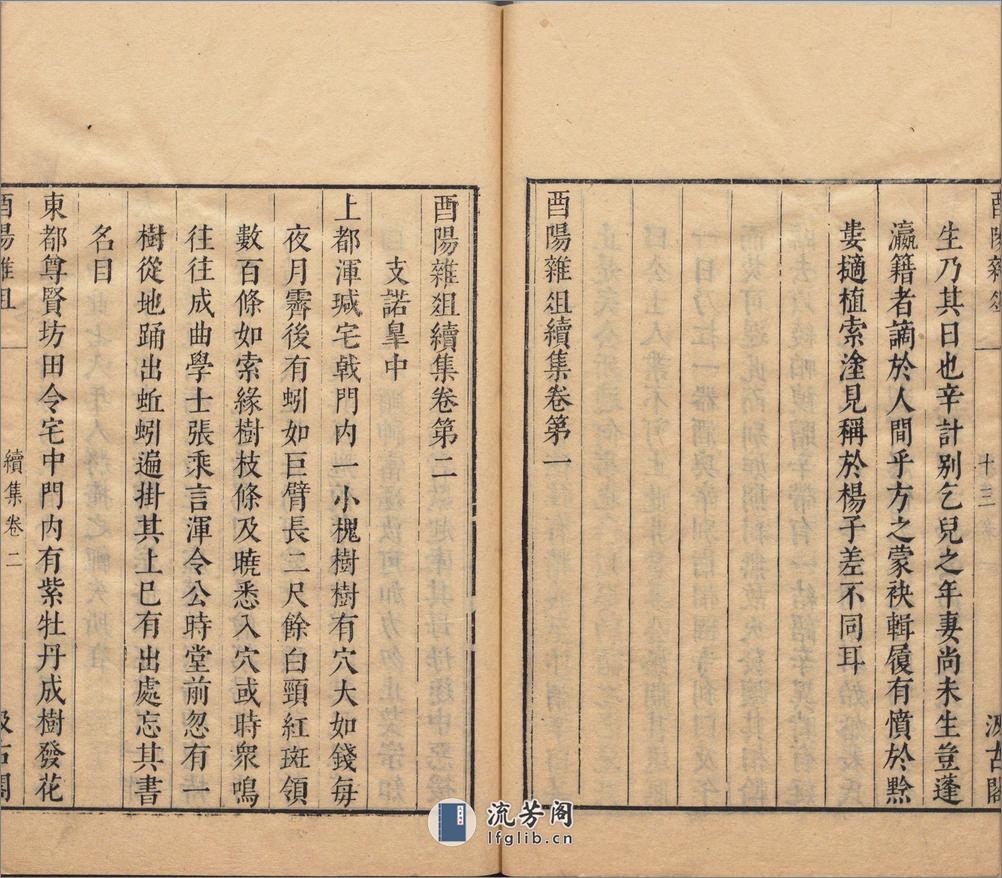 酉陽雜俎
十三
汲古閣
生乃其日也辛計別乞兒之年妻尚未生豈蓬
瀛籍者謫於人間乎方之蒙袂輯履有憤於黔
婁擿植索塗見稱於楊子差不同耳
酉陽雜俎續集卷第一
酉陽雜俎續集卷第二
支諾皐中
上都渾瑊宅戟門内一小槐樹樹有穴大如錢每
夜月霽後有蚓如巨臂長二尺餘白頸紅斑領
數百條如索緣樹枝條及曉悉入穴或時衆鳴
往往成曲學士張乘言渾令公時堂前忽有一
樹從地踊出蚯蚓遍掛其上已有出處忘其書
名目
東都尊賢坊田令宅中門内有紫牡丹成樹發花
酉陽雜俎
續集卷二
汲古閣
流芳阁
lfglib.cn